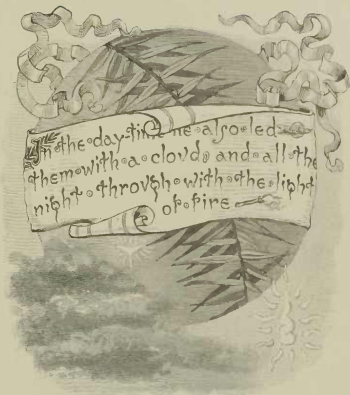 In the day time he also led
them with a cloud and all the
night through with the light
of fire